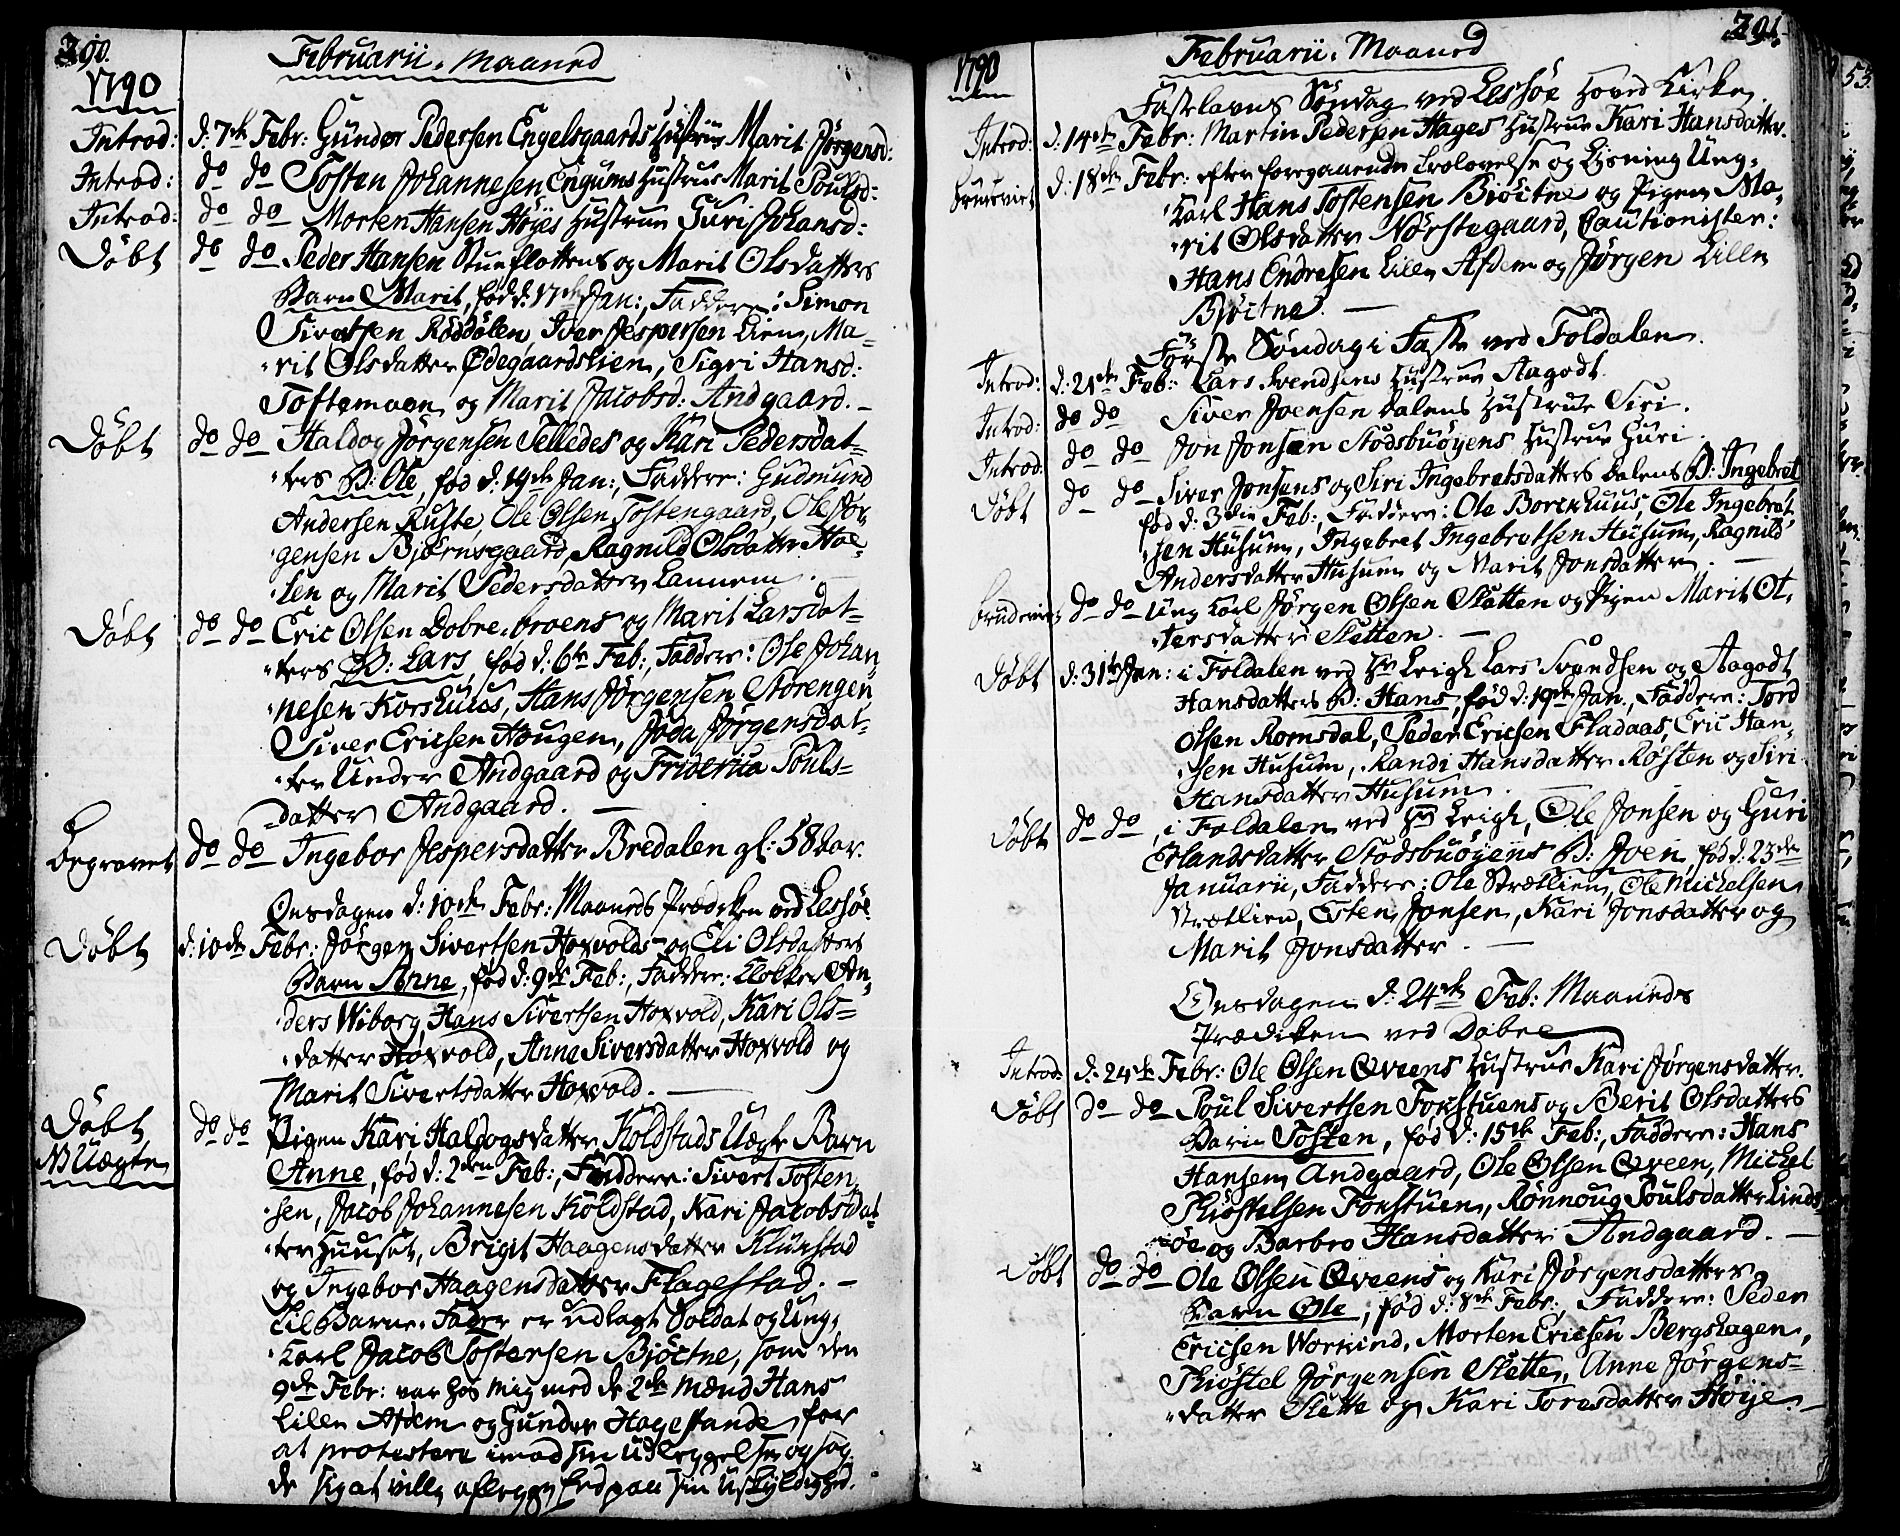 290.
Februarii. Maaned
1790
Introd: d: 7de Febr: Gunder Pedersen Engelsgaards Hustrue Marit Jørgensd:
Introd: do do Tosten Johannesen Engums Hustrue Marit Poulsd:
Introd: do do Morten Hansen Høyes Hustrue Guri Johansd:
Døbt do do Peder Hansen Stueflottens og Marit Olsdatters
Barn Marit, fød d: 17de Jan:, Faddere: Simon
Sivertsen Røddølen, Iver Jespersen Lien, Ma-
rit Olsdatter Ødegaardslien, Sigri Hansd:
Toftemoen og Marit Jacobsd: Andgaard. -
Døbt do do Haldog Jørgensen Telledes og Kari Pedersdat-
ters B: Ole, fød d: 19de Jan:, Faddere: Gudmund
Andersen Ruste, Ole Olsen Tostengaard, Ole Jør-
gensen Bjørnsgaard, Ragnild Olsdatter Hoe-
len og Marit Pedersdatter Lannem. -
Døbt do do Eric Olsen Dobre-broens og Marit Larsdat-
ters B: Lars, fød d: 6te Feb:, Faddere: Ole Johan-
nesen Korshuus, Hans Jørgensen Storengen,
Siver Ericsen Hougen, Joda Jørgensdat-
ter Under Andgaard og Friderica Pouls-
datter Andgaard. -
Begravet do do Ingebor Jespersdatter Bredalen gl: 58 Aar.
Onsdagen d: 10de Febr: Maaneds Prædiken ved Lessøe
Døbt d: 10de Febr: Jørgen Sivertsen Hoxvolds og Eli Olsdatters
Barn Anne, fød d: 9de Feb:, Faddere: Klokker An-
ders Wiborg, Hans Sivertsen Hoxvold, Kari Ols-
datter Hoxvold, Anne Siversdatter Hoxvold og
Marit Sivertsdatter Hoxvold. -
Døbt do do Pigen Kari Haldogsdatter Koldstads Uægte Barn
NB Uægte
Anne, fød d: 2den Feb:, Faddere: Sivert Tosten-
sen, Jacob Johannesen Koldstad, Kari Jacobsdat-
ter Huuset, Brigit Haagensdatter Klukstad
og Ingebor Haagensdatter Flagestad. -
Til Barne-Fader er udlagt Soldat og Ung-
karl Jacob Tostensen Bjøctne, som den
9de Febr: var hos mig med de 2de Mænd Hans
Lillen Afdem og Gunder Hagestande, for
at protestere imod sin Udleggelse og sag-
de sig at ville aflegge Eed paa sin Uskyldighed.
291.
1790
Februarii. Maaned
Fastelavns Søndag ved Lessøe Hoved Kirke.
Introd: d: 14de Febr: Martin Pedersen Hages Hustrue Kari Hansdatter.
Brudeviet d: 18de Febr: efter foregaaende Trolovelse og Lysning Ung-
karl Hans Tostensen Bjøctne og Pigen Ma-
rit Olsdatter Nørstegaard, Cautionister:
Hans Endresen Lillen Afdem og Jørgen Lille
Bjøctne. -
Første Søndag i Faste ved Foldalen.
Introd: d: 21de Feb: Lars Svendsens Hustrue Aagodt.
Introd: do do Siver Joensen Dalens Hustrue Siri.
Introd: do do Jon Jonsen Stodsbuøyens Hustrue Guri
Døbt do do Siver Jonsens og Siri Ingebretsdatters Dalens B: Ingebret
fød d: 3die Feb:, Faddere: Ole Borkhuus, Ole Ingebret-
sen Husum, Ingebret Ingebretsen Husum, Ragnild
Andersdatter Husum og Marit Jonsdatter. -
Brudeviet do do Ung Karl Jørgen Olsen Sletten og Pigen Marit Ot-
tersdatter Sletten. -
Døbt d: 31te Jan: i Foldalen ved Hr Leigh Lars Svendsen og Aagodt
Hansdatters B: Hans, fød d: 19de Jan., Faddere: Tord
Olsen Romsdal, Peder Ericsen Fladaas, Eric Han-
sen Husum, Randi Hansdatter Røsten og Siri
Hansdatter Husum. -
Døbt do do, i Foldalen ved Hr Leigh, Ole Jonsen og Guri
Erlandsdatter Stodsbuøyens B: Joen, fød d: 23de
Januarii, Faddere: Ole Strætlien, Ole Mickelsen
Strætlien, Esten Jonsen, Kari Jonsdatter og
Marit Jonsdatter. -
Onsdagen d: 24de Feb: Maaneds
Prædiken ved Dobre
Introd: d: 24de Febr: Ole Olsen Qveens Hustrue Kari Jørgensdatter.
Døbt do do Poul Sivertsen Fonstuens og Berit Olsdatters
Barn Tosten, fød d: 15de Feb:, Faddere: Hans
Hansen Andgaard, Ole Olsen Qveen, Mickel
Kiøstelsen Fonstuen, Rønnoug Poulsdatter Linds-
øe og Barbro Hansdatter Andgaard. -
Døbt do do Ole Olsen Qveens og Kari Jørgensdatters
Barn Ole, fød d: 8de Febr:, Faddere: Peder
Ericsen Workind, Morten Ericsen Bergshagen,
Kiøstel Jørgensen Slette, Anne Jørgens-
datter Slette og Kari Toresdatter Høije. -